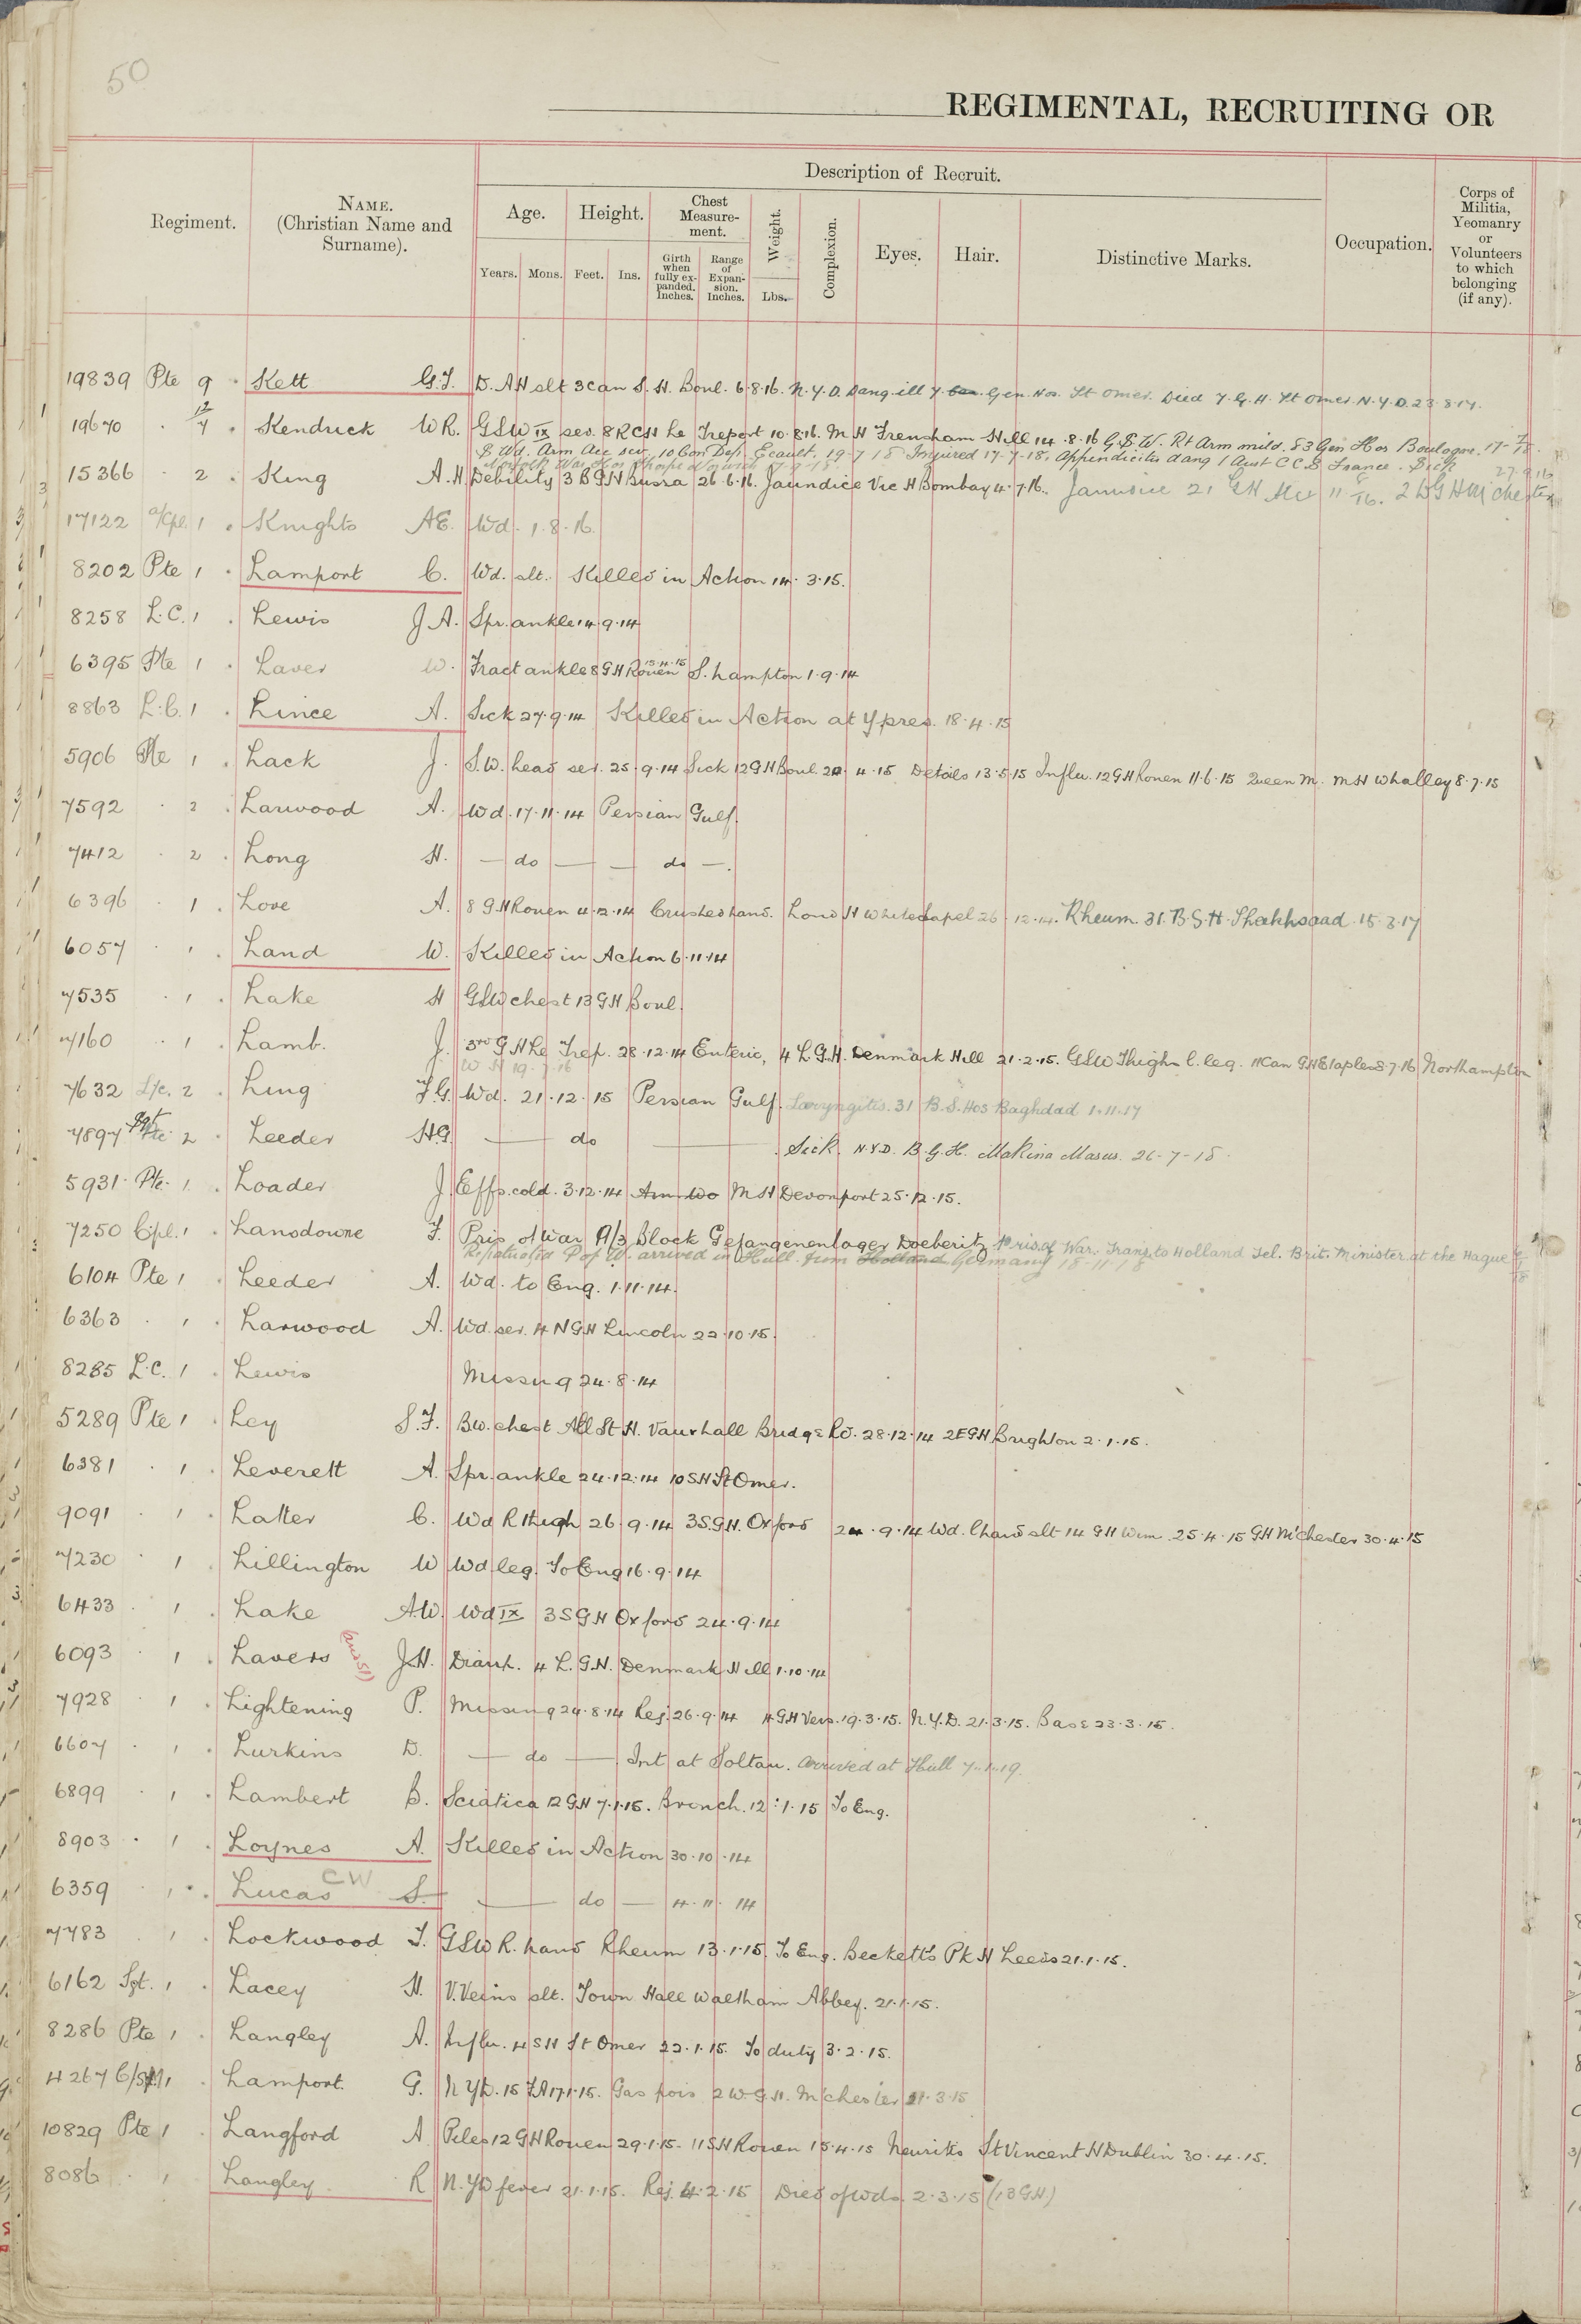 50
REGIMENTAL, RECRUITING OR
Regiment.
NAME.
(Christian Name and
Surname).
Description of Recruit.
Age.
Height.
Chest
Measure-
ment.
Weight.
Complexion.
Eyes.
Hair.
Distinctive Marks.
Occupation.
Corps of
Militia,
Yeomanry
or
Volunteers
to which
belonging
(if any).
Years.
Mons.
Feet.
Ins.
Girth
when
fully ex-
panded.
Inches.
Range
of
Expan-
sion.
Inches.
Lbs.
19839 Pte 9 Kett G.F. D.AH slt 3 Can S.H. Boul. 6.8.16. N.Y.D. Dang. ill 7 Gen. Hos. St Omer. Died 7.G.H. St Omer. N.Y.D. 23.8.17.
19670 " 12/7 Kendrick W R. GSW IX sev. 8 RCH Le Treport 10.8.16. M H Frensham Hill 14.8.16 G.S.W. Rt Arm mild. 83 Gen Hos Boulogne.
S Wd. Arm Acc sev. 10 Con Dep. Ecault. 19-7-18 Injured 17-7-18. Appendicitis dang 1 Aust C C S France. Sick
15366 " 2 King A.H. Debility 3 B G H Busra 26.6.16. Jaundice Vic H Bombay 4.7.16. Jaundice 21 2 W G H M'chester 27.9.16
17122 a/Cpl. 1 Knights AE. Wd. 1.8.16.
8202 Pte 1 Lamport C. Wd. slt. Killed in Action 14.3.15.
8258 L.C. 1 Lewis J A. Spr. ankle 14.9.14
6395 Pte 1 Laver W. Fract ankle 8 G H Rouen 15.4.15 S.hampton 1.9.14
8863 L.C. 1 Lince A. Sick 27.9.14 Killed in Action at Ypres. 18.4.15
5906 Pte 1 Lack J. S.W. head sev. 25.9.14 Sick 12 G H Boul. 20.4.15 Details 13.5.15 Influ. 12 G H Rouen 11.6.15 Queen M. M H Whalley 8.7.15
7592 " 2 Larwood A. Wd. 17.11.14 Persian Gulf.
7412 " 2 Long H. — do — — do —.
6396 " 1 Love A. 8 G.H Rouen 4.12.14 Crushed hand. Lond H Whitechapel 26.12.14. Rheum. 31. B.S.H. Shekhsaad. 15.3.17
6057 " 1 Land W. Killed in Action 6.11.14
7535 " 1 Lake H GSW chest 13 G H Boul.
7160 " 1 Lamb. J. 3rd G H Le Trep. 28.12.14 Enteric, 4 L.G.H. Denmark Hill 21.2.15. GSW Thigh l. leg. 11 Can G.H Etaples 8.7.16 Northampton
W H 19.7.16
7632 L/c. 2 Ling F.G. Wd. 21.12.15 Persian Gulf. Laryngitis. 31 B.S. Hos Baghdad 1.11.17
7897 Sgt Pte 2 Leeder H.G. — do — Sick. N.Y.D. B.G.H. Makina Masus. 26-7-18.
5931 Pte. 1 Loader J. Effs. cold. 3.12.14 Am. Wo M H Devonport 25.12.15.
7250 Cpl. 1 Lansdowne F. Pris. of War A/3 Block Gefangenenlager Doeberitz Pris. of War. Trans. to Holland Tel. Brit. Minister at the Hague
Repatriated P of W. arrived in Hull from Holland Germany 18-11-18
6104 Pte 1 Leeder A. Wd. to Eng. 1.11.14.
6363 " 1 Larwood A. Wd. sev. 4 N G H Lincoln 22.10.15.
8285 L.C. 1 Lewis Missing 24.8.14
5289 Pte 1 Ley S.F. B.W. chest All St H. Vauxhall Bridge Rd. 28.12.14 2 E G H Brighton 2.1.15.
6381 " 1 Leverett A. Spr. ankle 24.12.14 10 S H St Omer.
9091 " 1 Latter C. Wd R thigh 26.9.14 3 S.G.H. Oxford 24.9.14 Wd. l hand slt 14 G H Wim. 25.4.15 G H M'chester 30.4.15
7230 " 1 Lillington W Wd leg. To Eng 16.9.14
6433 " 1 Lake A.W. Wd IX 3 S G H Oxford 24.9.14
6093 " 1 Lavers (and 51) J.H. Diarrh. 4 L.G.H. Denmark Hill 1.10.14
7928 " 1 Lightening P. Missing 24.8.14 Rej. 26.9.14 4 G.H Vers. 19.3.15. N.Y.D. 21.3.15. Base 23.3.15.
6607 " 1 Lurkins D. — do — Int at Soltau. Arrived at Hull 7.1.19.
6899 " 1 Lambert B. Sciatica 12 G.H 7.1.15. Bronch. 12.1.15 To Eng.
8903 " 1 Loynes A. Killed in Action 30.10.14
6359 " 1 Lucas CW S. — do — 4.11.14
7783 " 1 Lockwood T. GSW R. hand Rheum 13.1.15. To Eng. Becketts Pk H Leeds 21.1.15.
6162 Sgt. 1 Lacey H. V. Veins slt. Town Hall Waltham Abbey. 21.1.15.
8286 Pte 1 Langley A. Influ. 4 S H St Omer 22.1.15. To duty 3.2.15.
4267 C/S/M 1 Lamport. G. N Y D. 15 F.A 17.1.15. Gas pois 2 W.G.H. M'chester 21.3.15
10829 Pte 1 Langford A Piles 12 G H Rouen 29.1.15. 11 S H Rouen 15.4.15 Neuritis St Vincent H Dublin 30.4.15.
8086 " 1 Langley R N.Y.D fever 21.1.15. Rej. 4.2.15 Died of wds. 2.3.15 (13 G.H)